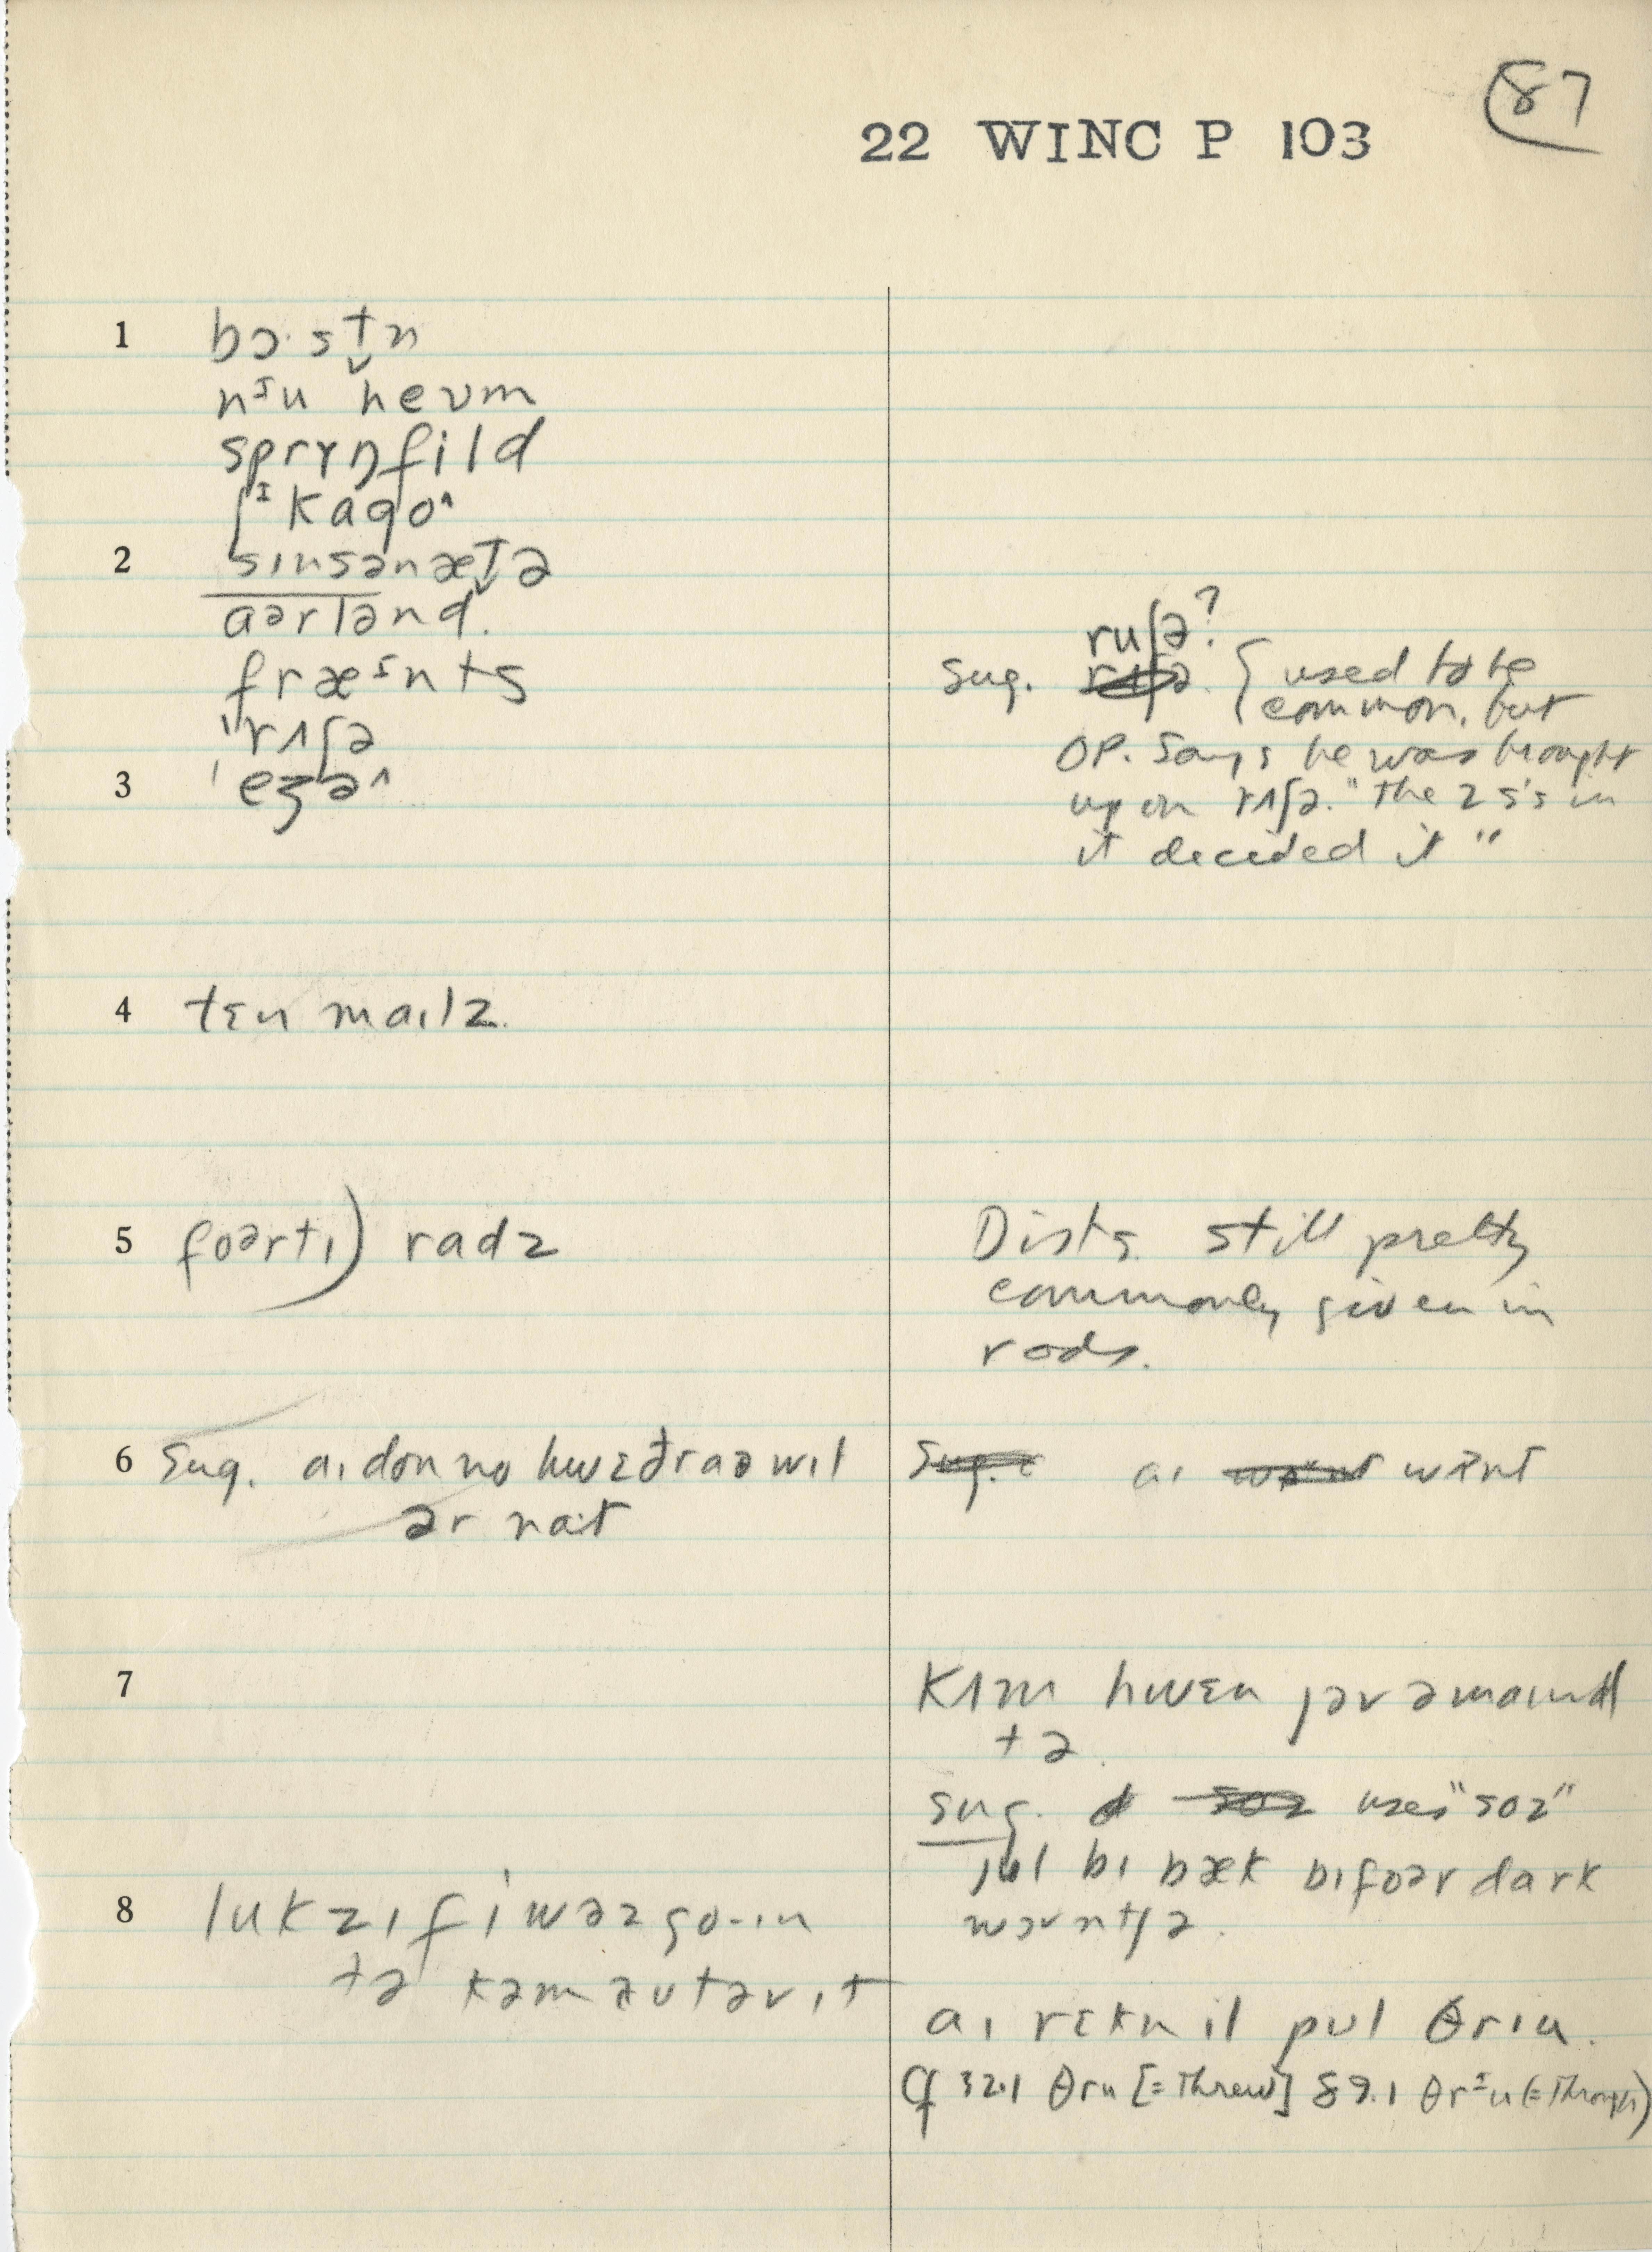 87
22 WINC P 103
1 bɔ·st̬n
nᶦu hevm
sprɤŋfild
ʃᶦkagoˆ
2 sɪnsənæt̬ə
aərlənd.
fræᶦnts
"rʌʃə
3 'eʒəˆ
ruʃə?
Sug. rʌʃə. { used to be
common, but
OP. Says he was brought
up on rʌʃə. "the 2 s's in
it decided it"
4 tɛn maɪlz.
5 foərtɪ) radz
Dists. still pretty
commonly given in
rods.
6 Sug. aɪ don no hwɛðr aə wɪl
ər nat
Sug. aɪ want
7 kʌm hwɛn jər ə maɪnd
tə.
sug. uses "soz"
jul bɪ bæk bɪfoər dark
wəntʃə.
8 lukz ɪf i wəz go-ɪn
tə kəm autəv ɪt
aɪ rɛkn il pul θrɪu.
Cf 32.1 θru [=threw] 89.1 θrᶦu (=through)